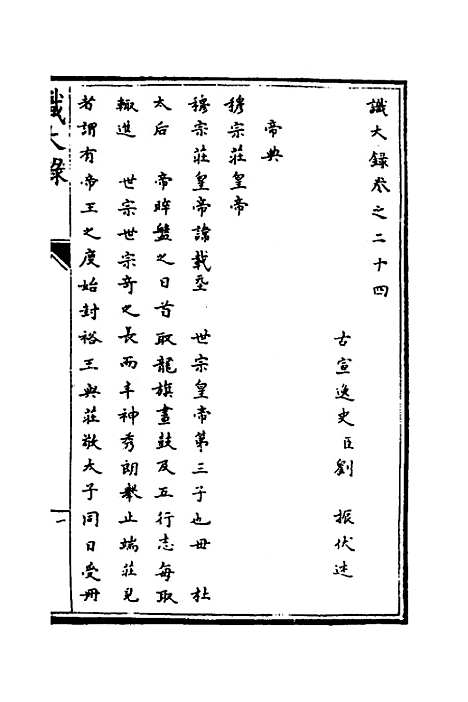 識大錄卷之二十四
古宣逸史臣劉 振伏述
帝典
穆宗莊皇帝
穆宗莊皇帝諱載坖 世宗皇帝第三子也毋 杜
太后 帝晬盤之日首取龍旗畫鼓及五行志每取
輙進 世宗世宗奇之長而丰神秀朗舉止端莊見
者謂有帝王之度始封裕王與莊敬太子同日受冊
識大錄
一